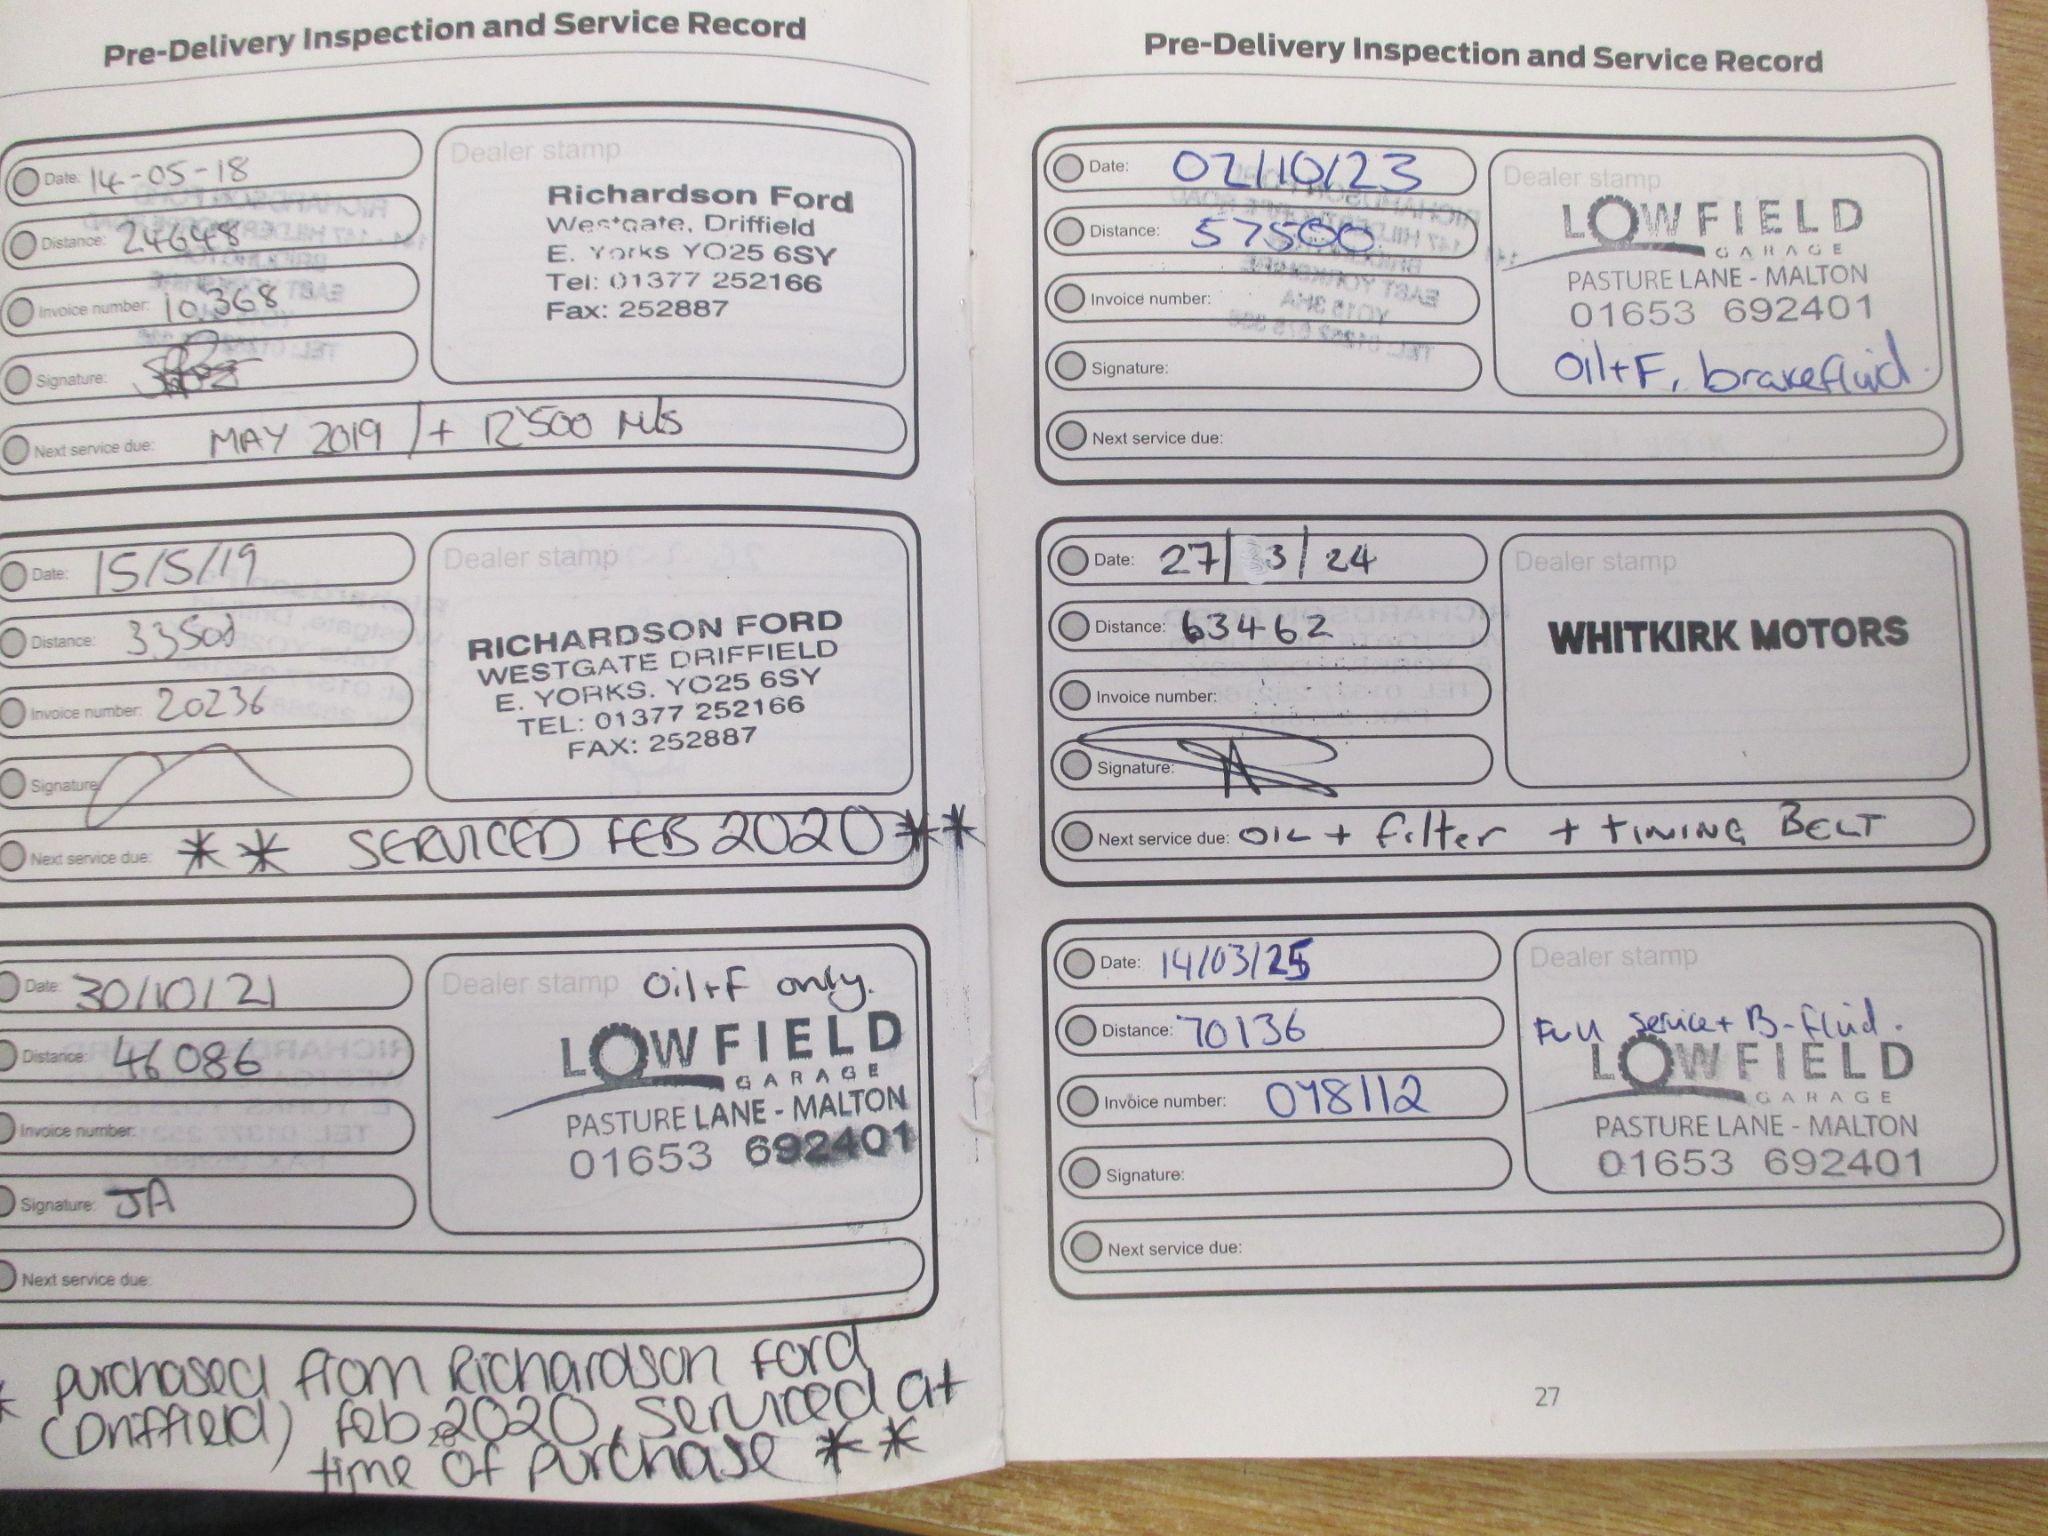 Pre-Delivery Inspection and Service Record
Date: 14-05-18
Distance: 24648
Invoice number: 10368
Signature:
Next service due: MAY 2019 / + 12500 mls
Dealer stamp
Richardson Ford
Westgate, Driffield
E. Yorks YO25 6SY
Tel: 01377 252166
Fax: 252887
Date: 15/5/19
Distance: 33500
Invoice number: 20236
Signature:
Next service due: ** SERVICED FEB 2020 **
Dealer stamp
RICHARDSON FORD
WESTGATE DRIFFIELD
E. YORKS. YO25 6SY
TEL: 01377 252166
FAX: 252887
Date: 30/10/21
Distance: 46086
Invoice number:
Signature: JA
Next service due:
Dealer stamp Oil+F only.
LOWFIELD
GARAGE
PASTURE LANE - MALTON
01653 692401
* purchased from Richardson Ford
(Driffield) Feb 2020, serviced at
time of purchase **
26
Pre-Delivery Inspection and Service Record
Date: 02/10/23
Distance: 57500
Invoice number:
Signature:
Next service due:
Dealer stamp
LOWFIELD
GARAGE
PASTURE LANE - MALTON
01653 692401
Oil+F, brakefluid.
Date: 27/3/24
Distance: 63462
Invoice number:
Signature:
Next service due: OIL + filter + TIMING BELT
Dealer stamp
WHITKIRK MOTORS
Date: 14/03/25
Distance: 70136
Invoice number: 078112
Signature:
Next service due:
Dealer stamp
Full service + B-fluid.
LOWFIELD
GARAGE
PASTURE LANE - MALTON
01653 692401
27